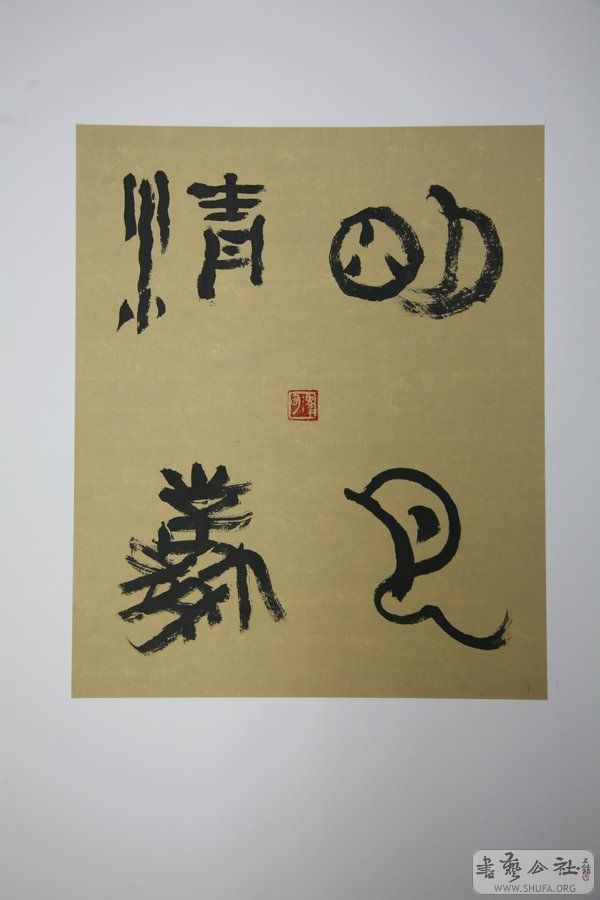 明見
情義
書藝公社
WWW.SHUFA.ORG